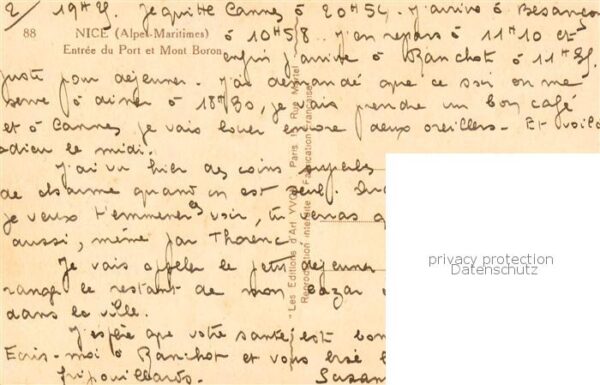 2/ 19h25. Je quitte Cannes à 20h54. J'arrive à Besançon
88 NICE (Alpes-Maritimes) à 10h58. J'en repars à 11h10 et
Entrée du Port et Mont Boron enfin j'arrive à Ranchot à 11h35.
juste pour déjeuner. J'ai demandé que ce soir on me
serve à dîner à 18h30, je vais prendre un bon café
et à Cannes je vais louer encore deux oreillers. Et voilà
adieu le midi.
J'ai vu hier des coins superbes
de charme quand on est seul.
je veux t'emmener les voir, tu verras
aussi, même par Thorenc
Je vais appeler le petit déjeuner
ranger le restant de mon bazar
dans la ville.
J'espère que votre santé est
Ecris-moi à Ranchot et vous
fripouillards. Suzan
"Les Editions d'Art YVON", Paris, Rue Martel
Reproduction interdite Fabrication Française
privacy protection
Datenschutz